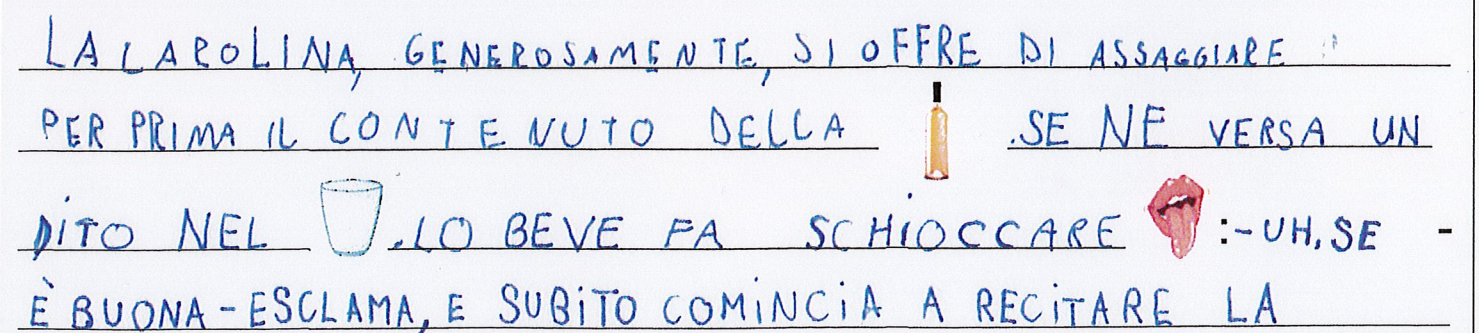 LA CAROLINA, GENEROSAMENTE, SI OFFRE DI ASSAGGIARE
PER PRIMA IL CONTENUTO DELLA .SE NE VERSA UN
DITO NEL .LO BEVE FA SCHIOCCARE :-UH, SE -
È BUONA-ESCLAMA, E SUBITO COMINCIA A RECITARE LA